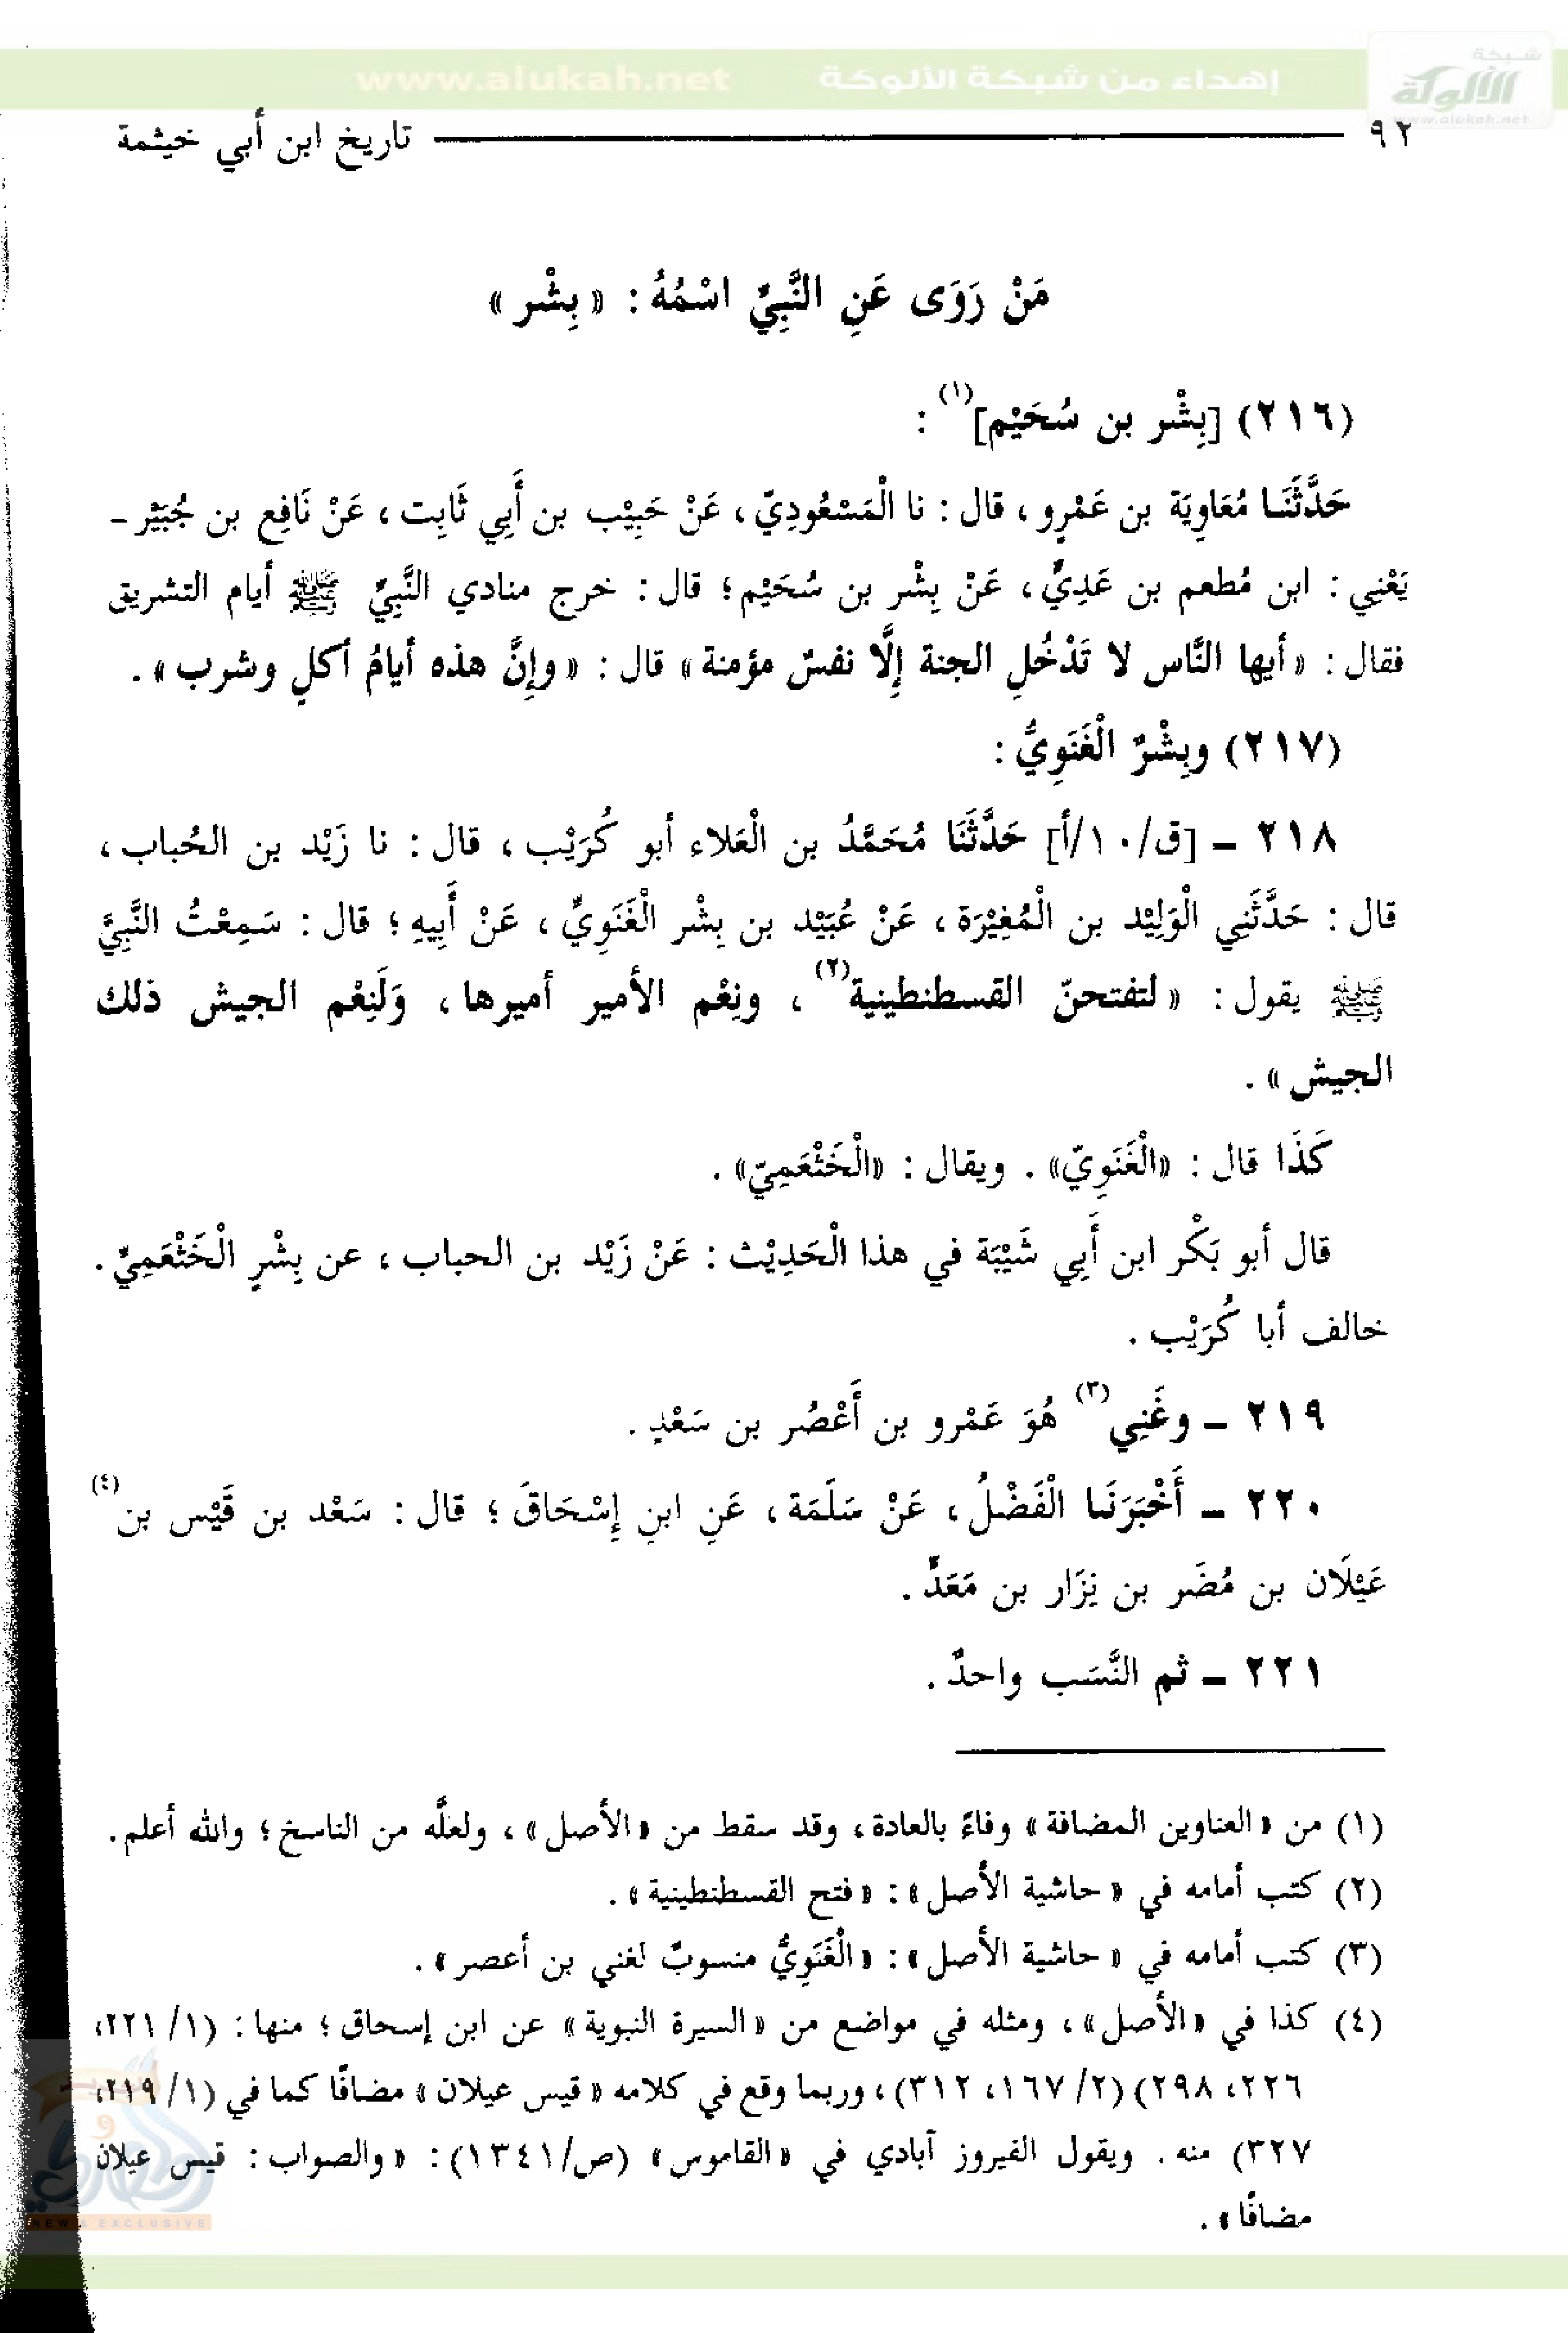 إهداء من شبكة الألوكة www.alukah.net
شبكة
الألوكة
www.alukah.net
٩٢ تاريخ ابن أبي خيثمة
مَنْ رَوَى عَنِ النَّبِيِّ اسْمُهُ : « بِشْر »
(٢١٦) [بِشْر بن سُحَيْم](١) :
حَدَّثَنَا مُعَاوِيَة بن عَمْرٍو ، قال : نا الْمَسْعُودِيّ ، عَنْ حَبِيْب بن أَبِي ثَابِت ، عَنْ نَافِع بن جُبَيْر -
يَعْنِي : ابن مُطعم بن عَدِيٍّ ، عَنْ بِشْر بن سُحَيْم ؛ قال : خرج منادي النَّبِيِّ ﷺ أيام التشريق
فقال : « أيها النَّاس لا تَدْخُلِ الجنة إِلَّا نفسٌ مؤمنة » قال : « وإِنَّ هذه أيامُ أكلٍ وشرب » .
(٢١٧) وبِشْرٌ الْغَنَوِيُّ :
٢١٨ – [ق/١٠/أ] حَدَّثَنَا مُحَمَّدُ بن الْعَلاء أبو كُرَيْب ، قال : نا زَيْد بن الحُباب ،
قال : حَدَّثَنِي الْوَلِيْد بن الْمُغِيْرَة ، عَنْ عُبَيْد بن بِشْر الْغَنَوِيِّ ، عَنْ أَبِيهِ ؛ قال : سَمِعْتُ النَّبِيَّ
ﷺ يقول : « لتفتحنّ القسطنطينية(٢) ، ونِعْم الأمير أميرها ، وَلَنِعْم الجيش ذلك
الجيش » .
كَذَا قال : «الْغَنَوِيّ» . ويقال : «الْخَثْعَمِيّ» .
قال أبو بَكْر ابن أَبِي شَيْبَة في هذا الْحَدِيْث : عَنْ زَيْد بن الحباب ، عن بِشْرٍ الْخَثْعَمِيِّ .
خالف أبا كُرَيْب .
٢١٩ – وغَنِي(٣) هُوَ عَمْرو بن أَعْصُر بن سَعْدٍ .
٢٢٠ – أَخْبَرَنَا الْفَضْلُ ، عَنْ سَلَمَة ، عَنِ ابنِ إِسْحَاقَ ؛ قال : سَعْد بن قَيْس بن(٤)
عَيْلَان بن مُضَر بن نِزَار بن مَعَدٍّ .
٢٢١ – ثم النَّسَب واحدٌ .
(١) من « العناوين المضافة » وفاءً بالعادة، وقد سقط من «الأصل» ، ولعلَّه من الناسخ ؛ والله أعلم .
(٢) كتب أمامه في « حاشية الأصل » : « فتح القسطنطينية » .
(٣) كتب أمامه في « حاشية الأصل » : «الْغَنَوِيُّ منسوبٌ لغني بن أعصر » .
(٤) كذا في «الأصل» ، ومثله في مواضع من «السيرة النبوية» عن ابن إسحاق ؛ منها : (١/ ٢٢١،
٢٢٦، ٢٩٨) (٢/ ١٦٧، ٣١٢) ، وربما وقع في كلامه « قيس عيلان » مضافًا كما في (١/ ٢١٩،
٣٢٧) منه . ويقول الفيروز آبادي في «القاموس» (ص/١٣٤١) : « والصواب : قيس عيلان
مضافًا » .
NEWS EXCLUSIVE